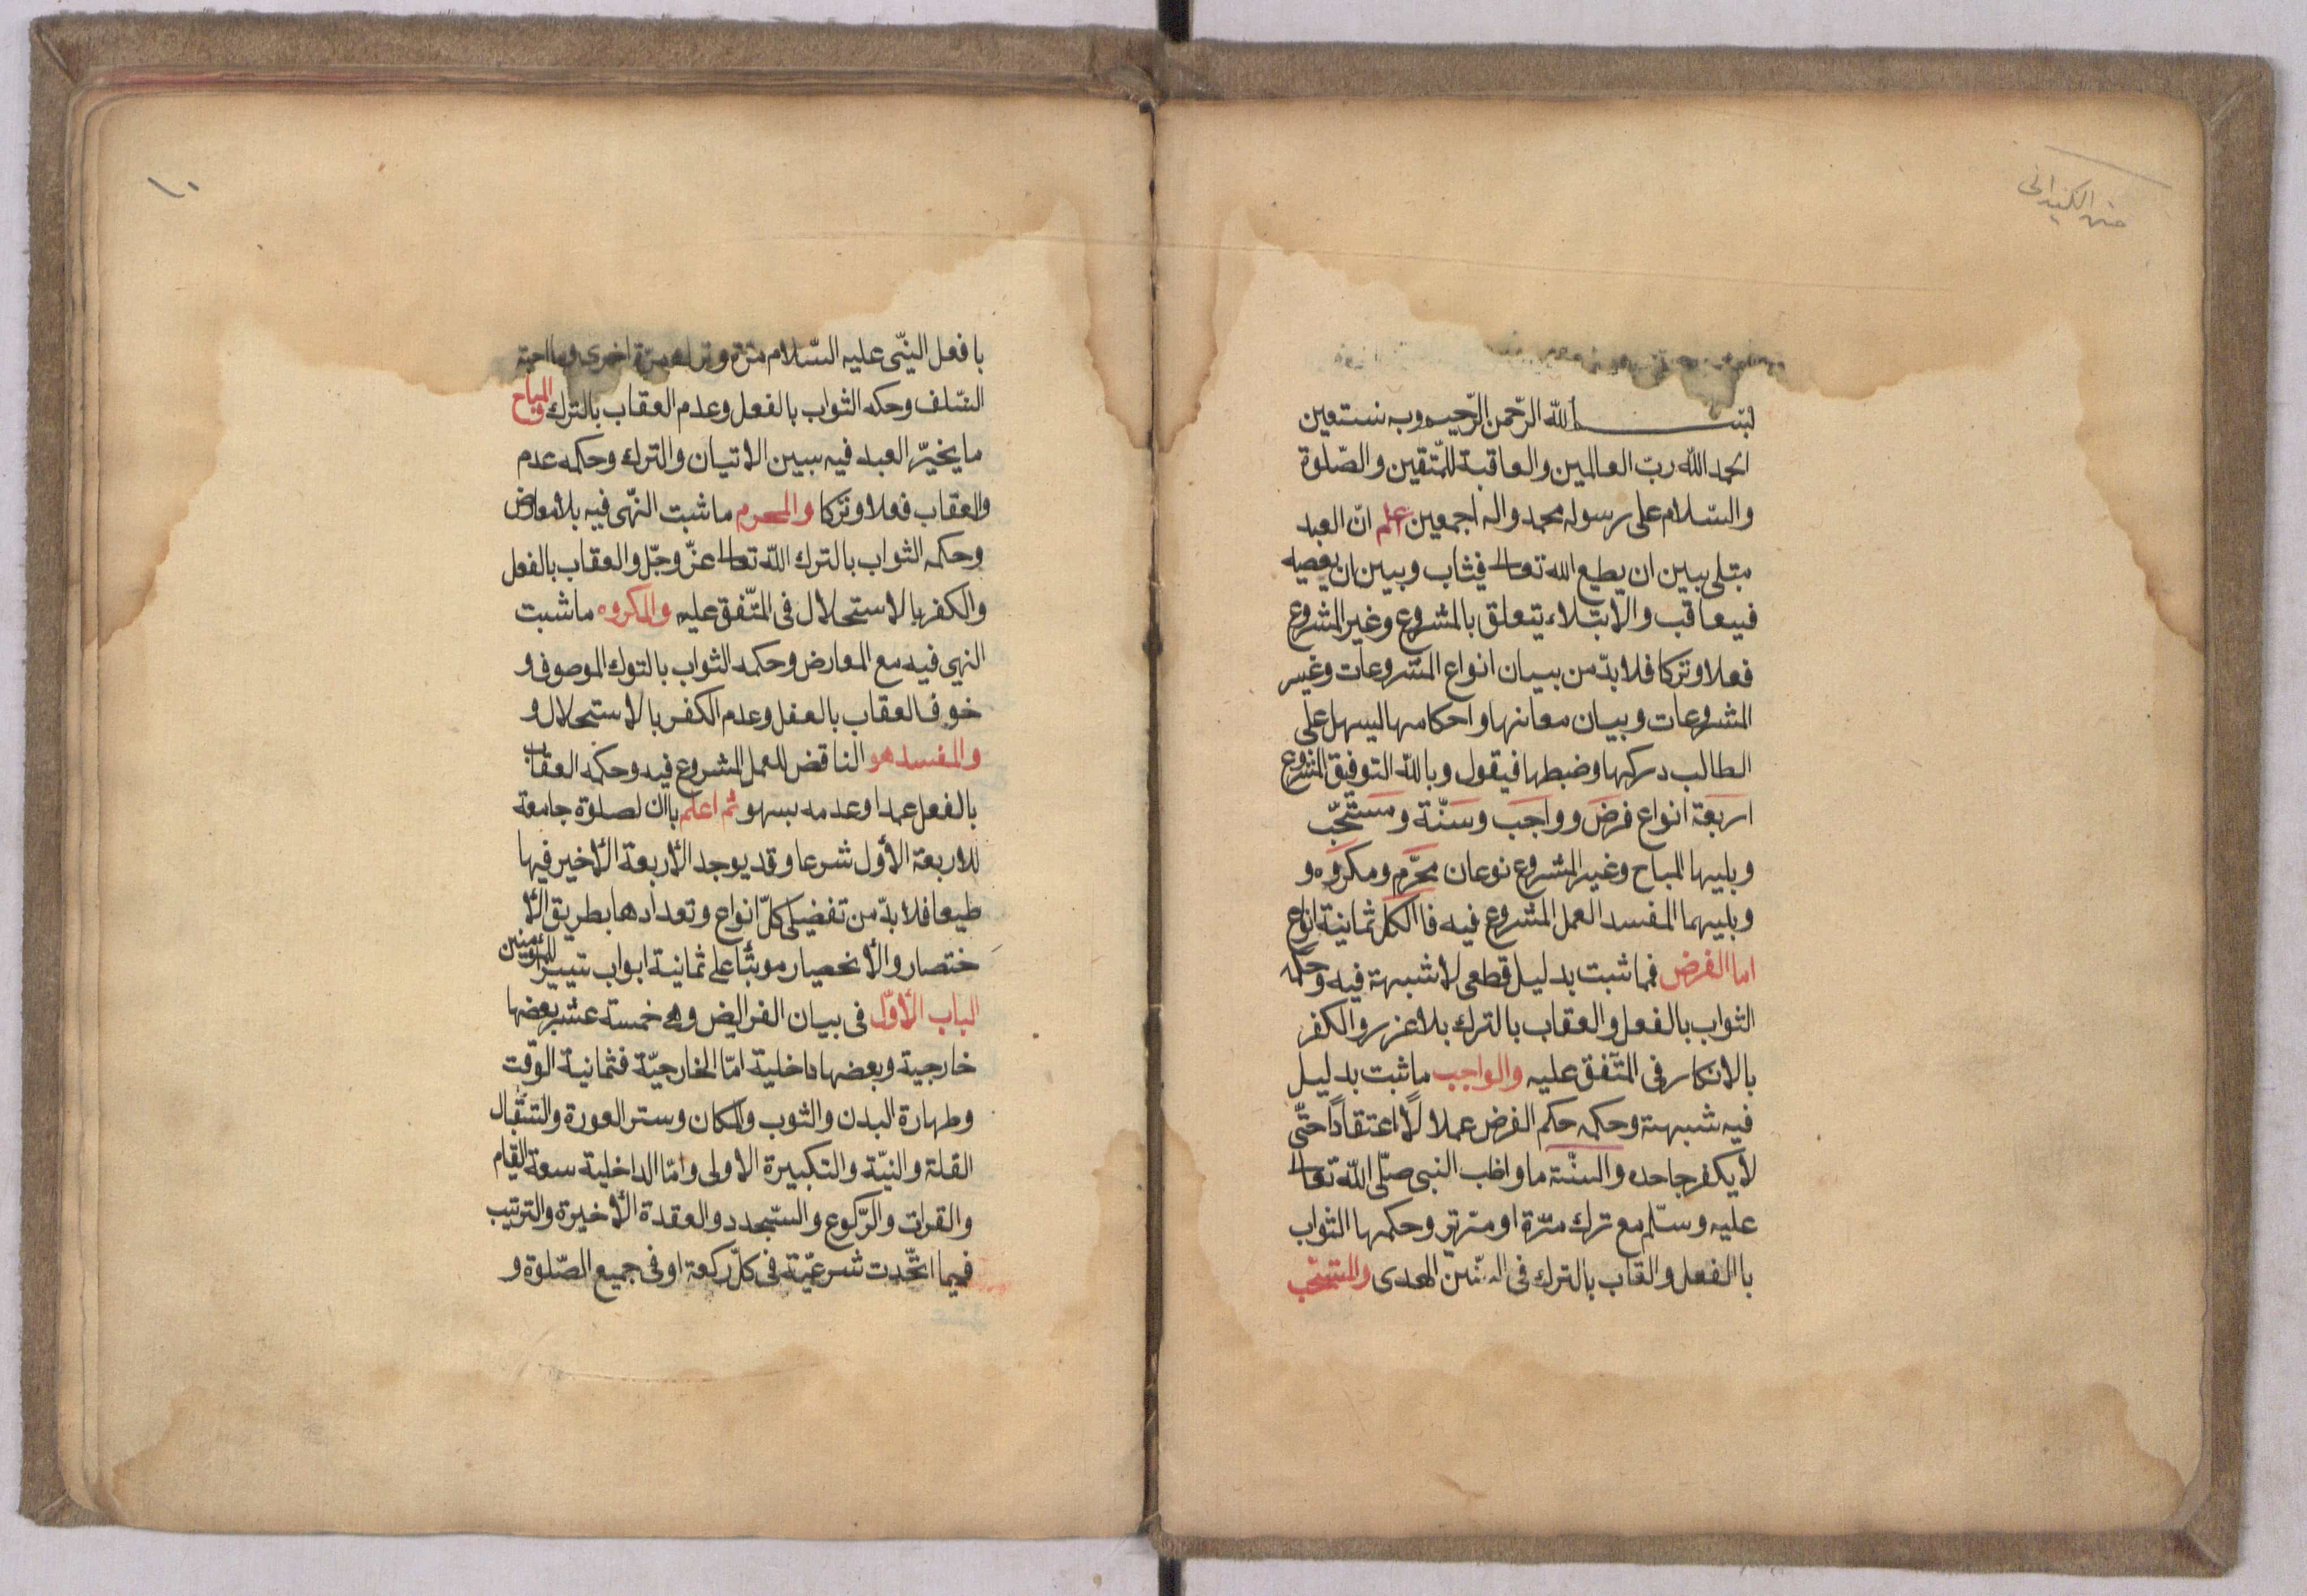 متن الكيدانى
بسم الله الرّحمن الرّحيم وبه نستعين
الحمد الله ربّ العالمين والعاقبة للمتّقين والصّلوة
والسّلام على رسوله محمد واله اجمعين اعلم انّ العبد
مبتلى بين ان يطيع الله تعالى فيثاب وبين ان يعصيه
فيعاقب والابتلاء يتعلق بالمشروع وغير المشروع
فعلا وتركا فلا بدّ من بيان انواع المشروعات وغير
المشروعات وبيان معانها واحكامها ليسهل على
الطالب دركها وضبطها فيقول وبالله التوفيق المشروع
اربعة انواع فرض وواجب وسنّة ومستحّب
ويليها المباح وغير المشروع نوعان محرّم ومكروه و
ويليهما المفسد العمل المشروع فيه فا الكل ثمانية انواع
اما الفرض فما ثبت بدليل قطعى لا شبهة فيه وحكمه
الثواب بالفعل والعقاب بالترك بلا عزر والكفر
بالانكار فى المتّفق عليه والواجب ما ثبت بدليل
فيه شبهة وحكمه حكم الفرض عملا لا اعتقاداً حتّى
لا يكفر جاحده والسنّة ما واظب النبى صلّى اللّه تعالى
عليه وسلّم مع ترك مرّة او مرتين وحكمها الثواب
باالفعل والقاب بالترك فى السّنين الهدى والمستحّب
با فعل النبّى عليه السّلام مرّة وتركه مرّة اخرى وما احبة
السّلف وحكه الثواب بالفعل وعدم العقاب بالترك والمباح
ما يخيّر العبد فيه ببين الاتيان والترك وحكمه عدم
والعقاب فعلا وتركا والمحرم ما ثبت النّهى فيه بلا معارض
وحكمه الثواب بالترك اللّه تعالى عزّ وجّل والعقاب بالفعل
والكفر بالاستحلال فى المتّفق عليه والمكروه ما ثبت
النهى فيه مع المعارض وحكمه الثواب بالتوك الموصوف و
خوف العقاب بالعفل وعدم الكفر بالاستحلال و
والمفسد هو الناقض للعمل المشروع فيه وحكمه العقاب
بالفعل عمدا وعدمه بسهو ثم اعلم باان لصلوة جامعة
للاربعة الأول شرعا وقد يوجد الأربعة الأخير فيها
طيعا فلا بدّ من تفضيل كلّ انواع وتعدادها بطريق الأ
ختصار والأنحصار مويثا على ثمانية ابواب تييسر للمؤمنين
الباب الأوّل فى بيان الفرايض وهى خمسة عشر بعضها
خارجية وبعضها داخلية امّا الخارجيّة فثمانية الوقت
وطهارة البدن والثوب والمكان وستر العورة والستقبال
القلة والنيّة والتكبيرة الاولى وامّا الداخلية سعة القيام
والقرات والرّكوع والسّجدد والعقدة الأخيرة والترتيب
فيما اتّحدت شرعيّة فى كلّ ركعة او فى جميع الصّلوة و
١٠